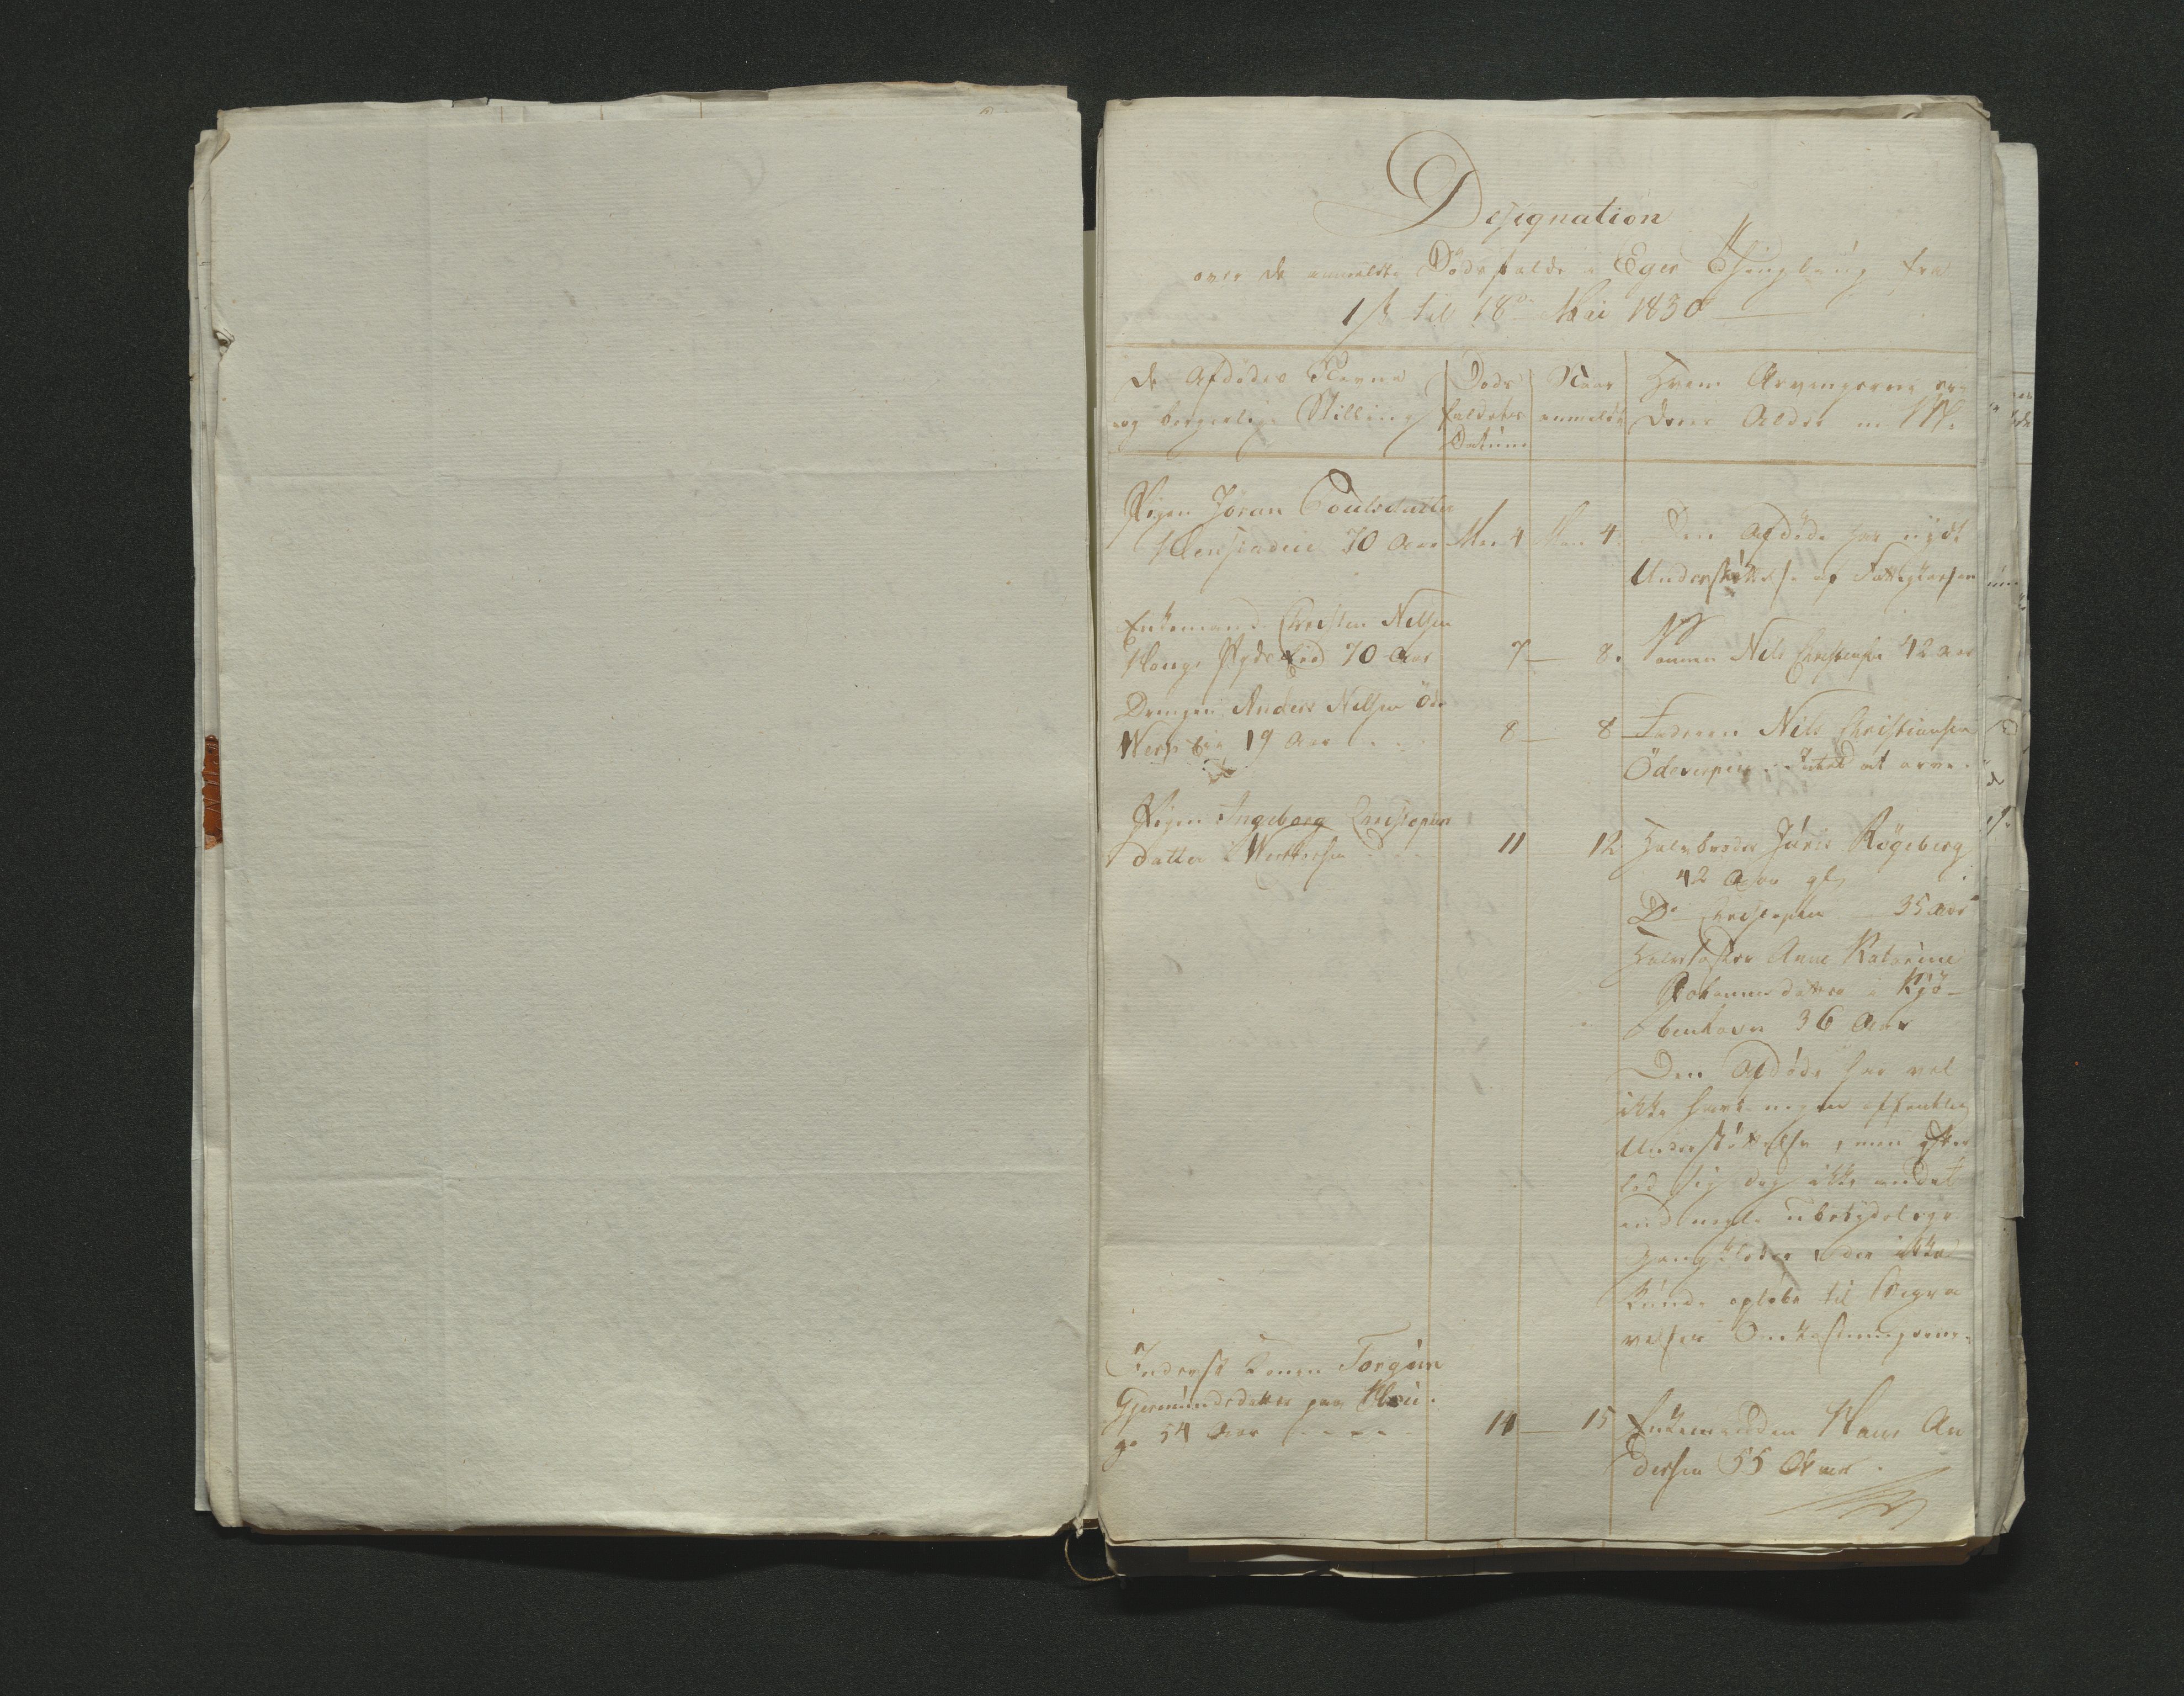 Designation
over de anmeldte Dødsfalde i Eger Thinglaug fra
1ste til 18de Mai 1830
De Afdødes Navne
og borgerlige Stilling
Døds
faldets
Datum
Naar
anmeldt
Hvem Arvingerne ere
deres Alder m. M.
Pigen Joran Poulsdatter
70 Aar Mai 4 Mai 4
Den Afdøde har nydt
Understøttelse af Fattigkassen
Enkemand Christen Nilsen
70 Aar 7 — 8.
Sønnen Nils Christensen 42 Aar
Drengen Anders Nilsen Öde
Werpen 19 Aar . . . 8 — 8
Faderen Nils Christiansen
Ödeverpen. Intet at arve.
Pigen Ingeborg Christopher
datter 11 12
Halvbroder Júris Rögeberg
42 Aar gl.
Do Christopher 35 Aar
Halvsøster Anne Katarine
Johannesdatter i Kjö-
benhavn 36 Aar
Den Afdøde har vel
ikke havt nogen offentlig
Understøttelse, men efter
lod sig dog ikke andet
end nogle ubetydelige
Gangklæder, der ikke
kunde opløbe til Begra
velses Omkostningerne.
Inderst Konen Torgún
Gjermúndsdatter paa Haú-
ge 54 Aar . - - - 14 — 15
Enkemanden Hans An
dersen 55 Aar.